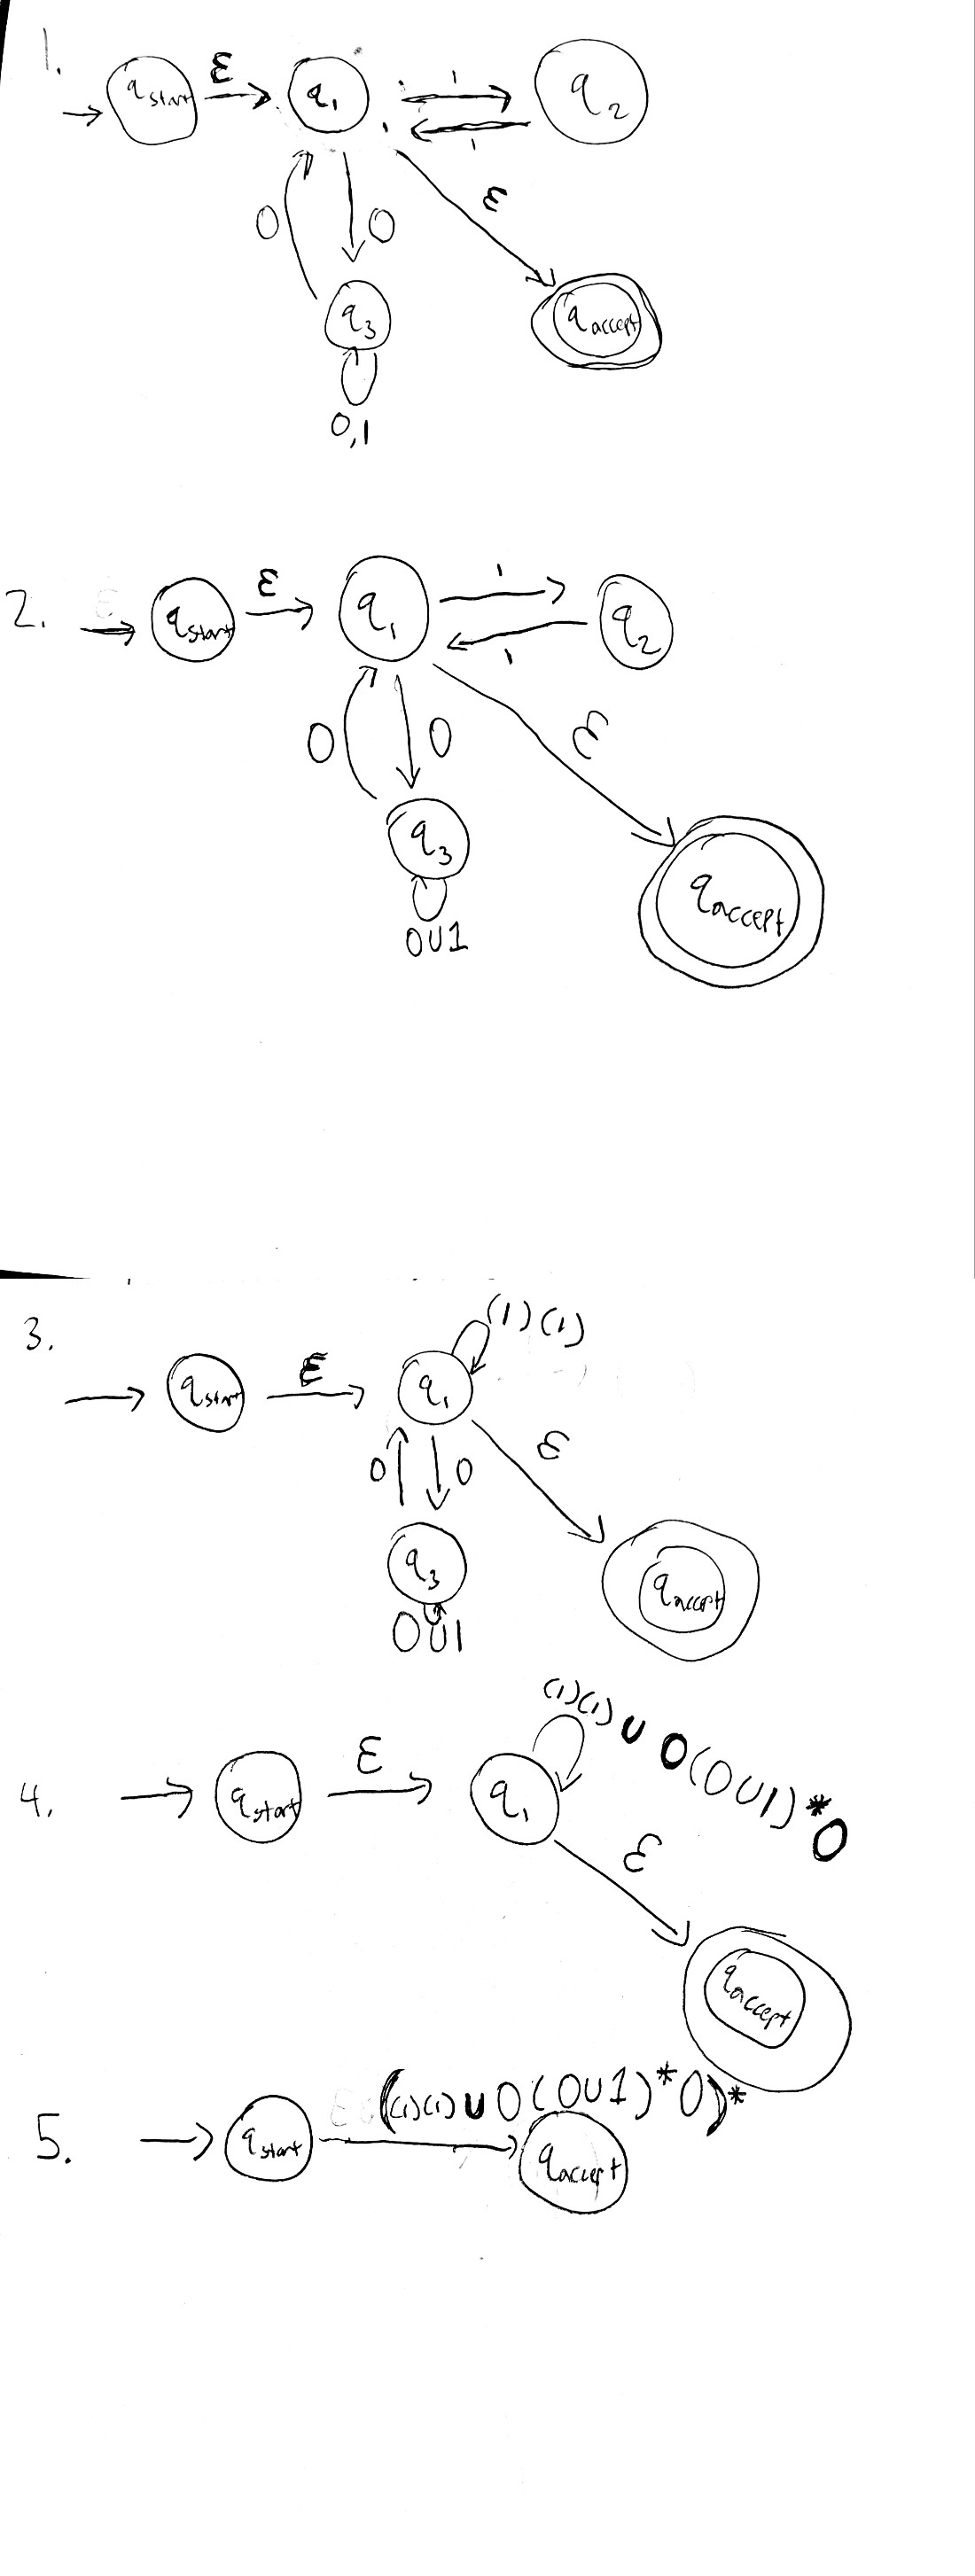 1.
q start ε q1 1 q2
1
0 0 ε
q3 q accept
0,1
2. q start ε q1 1 q2
1
0 0 ε
q3 q accept
0U1
3. (1)(1)
q start ε q1
0 0 ε
q3 q accept
0U1
(1)(1) U 0(0U1)*0
4. q start ε q1
ε
q accept
((1)(1) U 0(0U1)*0)*
5. q start q accept